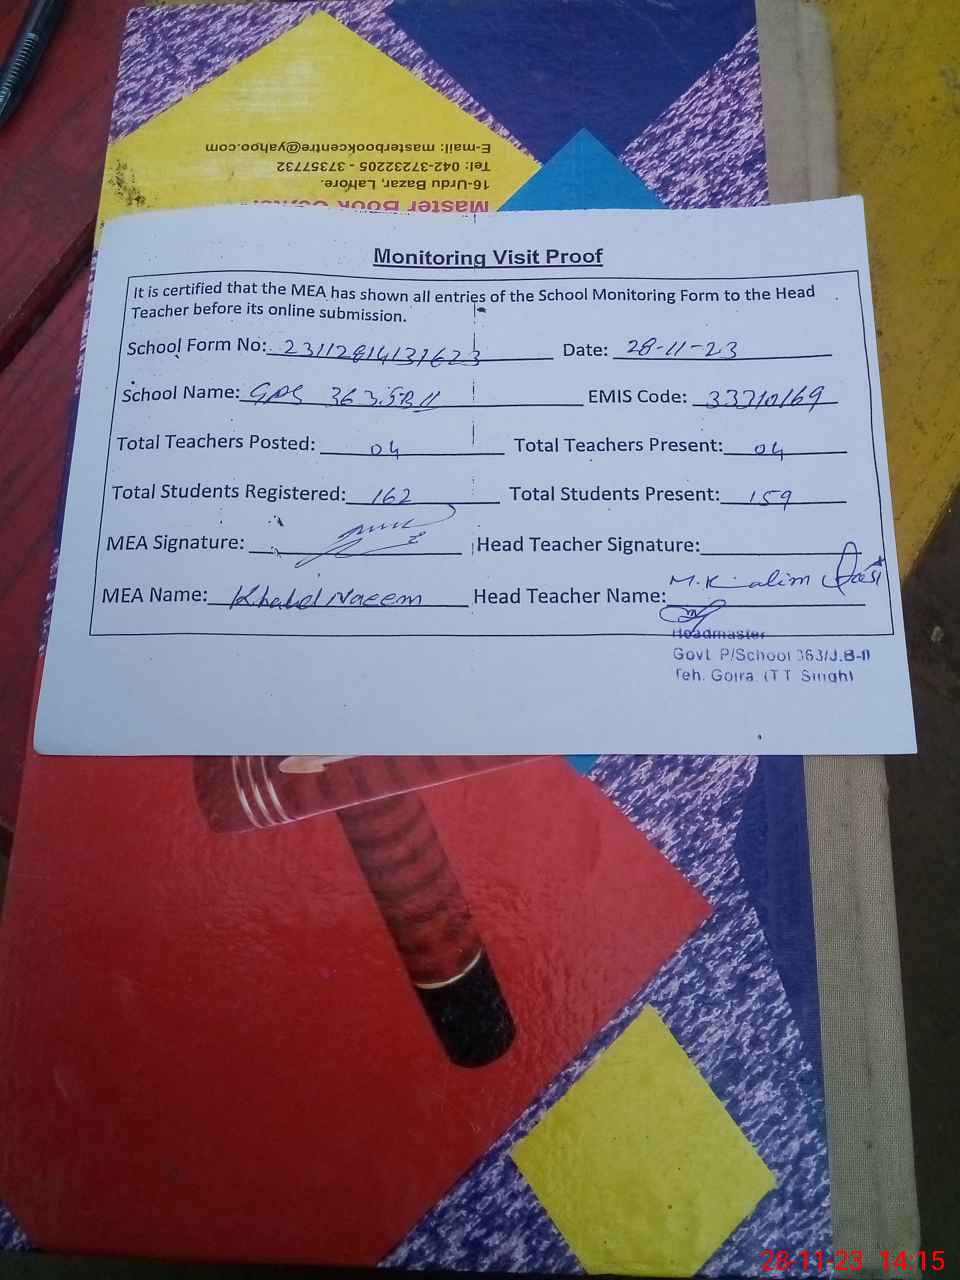 E-mail: masterbookcentre@yahoo.com
Tel: 042-37232205 - 37357732
16-Urdu Bazar, Lahore.
Master Book
Monitoring Visit Proof
It is certified that the MEA has shown all entries of the School Monitoring Form to the Head
Teacher before its online submission.
School Form No: 23112814131623 Date: 28-11-23
School Name: GPS 363 JB II EMIS Code: 33310169
Total Teachers Posted: 04 Total Teachers Present: 04
Total Students Registered: 162 Total Students Present: 159
MEA Signature: Head Teacher Signature:
MEA Name: Khalid Naeem Head Teacher Name: M. Kalim
Headmaster
Govt. P/School 363/J.B-II
Teh. Gojra. (T.T. Singh)
28-11-23 14:15